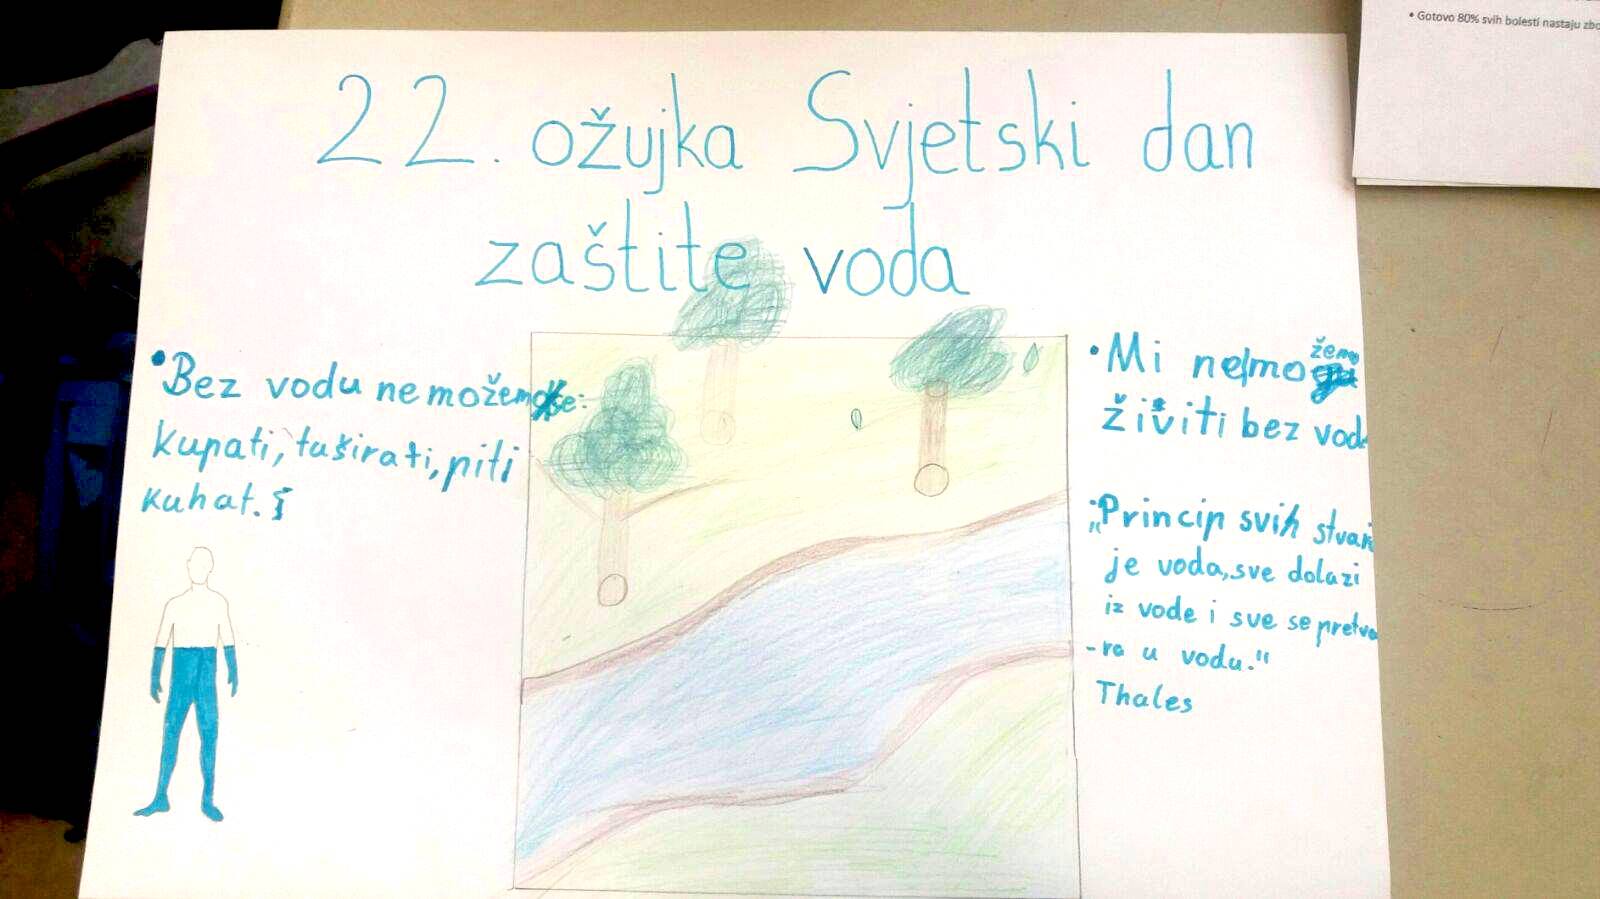 22. ožujka Svjetski dan
zaštite voda
• Bez vodu ne možemo se:
kupati, tuširati, piti
kuhat. I
• Mi ne možemo
živiti bez vod
• „Princip svih stvari
je voda, sve dolazi
iz vode i sve se pretva
-ra u vodu."
Thales
• Gotovo 80% svih bolesti nastaju zbo